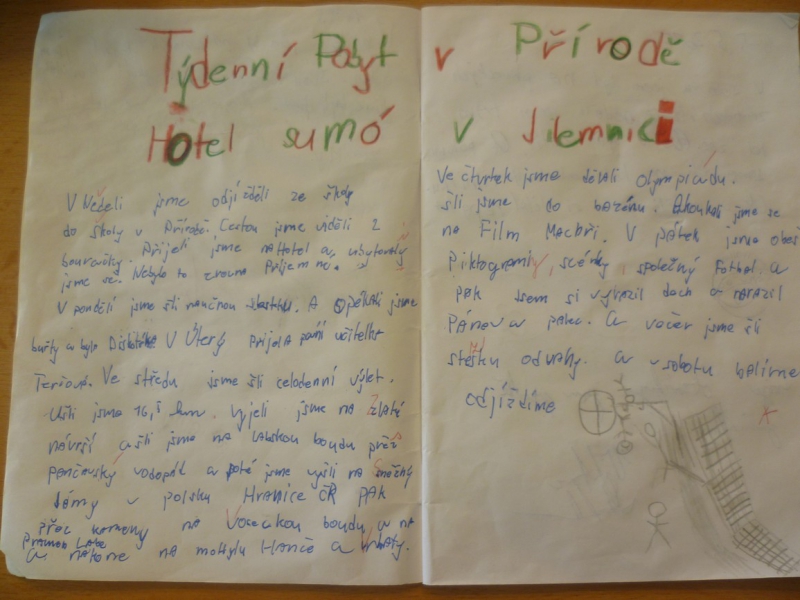 Týdenní Pobyt v Přírodě
Hotel sumó v Jilemnici
V Neděli jsme odjížděli ze školy
do školy v Přírodě. Cestou jsme viděli 2
bouračky. Přijeli jsme na Hotel a ubytovaly
jsme se. Nebylo to zrovna Příjemne.
V pondělí jsme šli naučnou stezku. A opékali jsme
buřty a byla Diskotéka V Úterý přijela paní učitelka
Terčová. Ve středu jsme šli celodenní výlet.
Ušli jsme 16,5 km. Vyjeli jsme na zlaté
návrší a šli jsme na labskou boudu přes
pančavský vodopád a poté jsme vyšli na sněžný
jámy v polsku Hranice ČR pak
přes kameny na Voseckou boudu a na
Pramen Labe
a nakonec na mohylu Hanče a Vrbaty.
Ve čtvrtek jsme dělali olympiádu.
šli jsme do bazénu. A koukali jsme se
na Film Macbři. V pátek jsme
Piktogramy, scénky, společný Fotbal. a
pak jsem si vyrazil dech a narazil
Pánev a palec. a večer jsme šli
stezku odvahy. a v sobotu balíme
odjíždíme